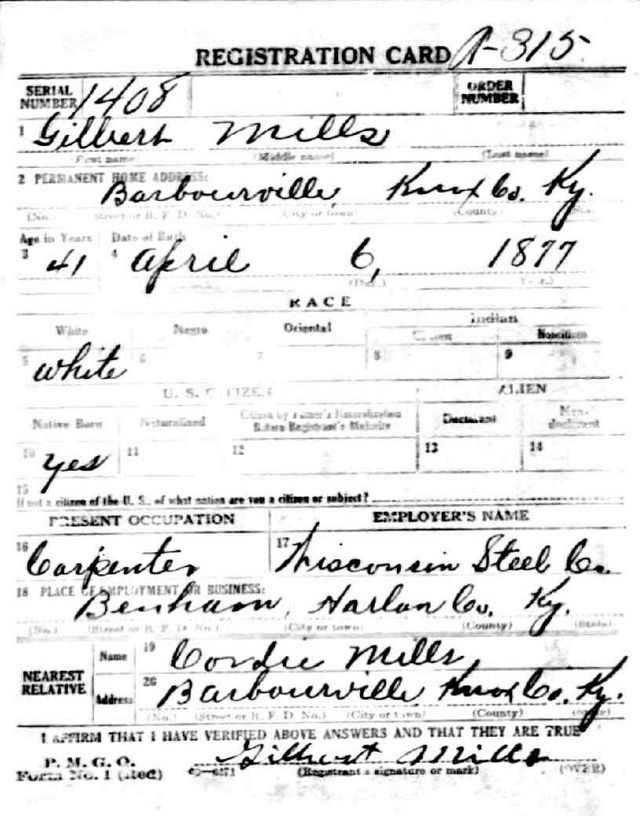 REGISTRATION CARD A-315
SERIAL NUMBER 1408 ORDER NUMBER
1 Gilbert Mills
First name (Middle name) (Last name)
2 PERMANENT HOME ADDRESS:
Barbourville, Knox Co. Ky.
(No.) Street or R. F. D. No.) (City or town) (County)
Age in Years Date of Birth
3 41 4 April 6, 1877
(Day.) (Year.)
RACE
White Negro Oriental Indian
Citizen Noncitizen
5 white 6 7 8 9
U. S. CITIZEN ALIEN
Native Born Naturalized Citizen by Father's Naturalization Before Registrant's Majority Declarant Non-declarant
10 Yes 11 12 13 14
15
If not a citizen of the U. S., of what nation are you a citizen or subject?
PRESENT OCCUPATION EMPLOYER'S NAME
16 Carpenter 17 Wisconsin Steel Co.
18 PLACE OF EMPLOYMENT OR BUSINESS:
Benham, Harlan Co. Ky.
(No.) (Street or R. F. D. No.) (City or town) (County) (State)
NEAREST RELATIVE Name 19 Cordie Mills
Address 20 Barbourville Knox Co. Ky.
(No.) (Street or R. F. D. No.) (City or town) (County)
I AFFIRM THAT I HAVE VERIFIED ABOVE ANSWERS AND THAT THEY ARE TRUE
P. M. G. O. Gilbert Mills
Form No. 1 (Red) (Registrant's signature or mark) (OVER)